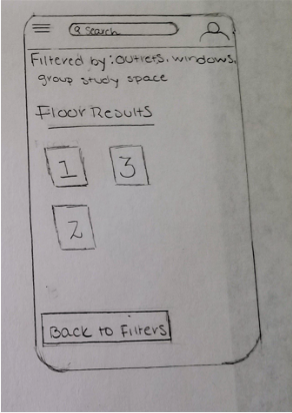 Search
Filtered by: outlets, windows,
group study space
Floor Results
1 3
2
Back to Filters